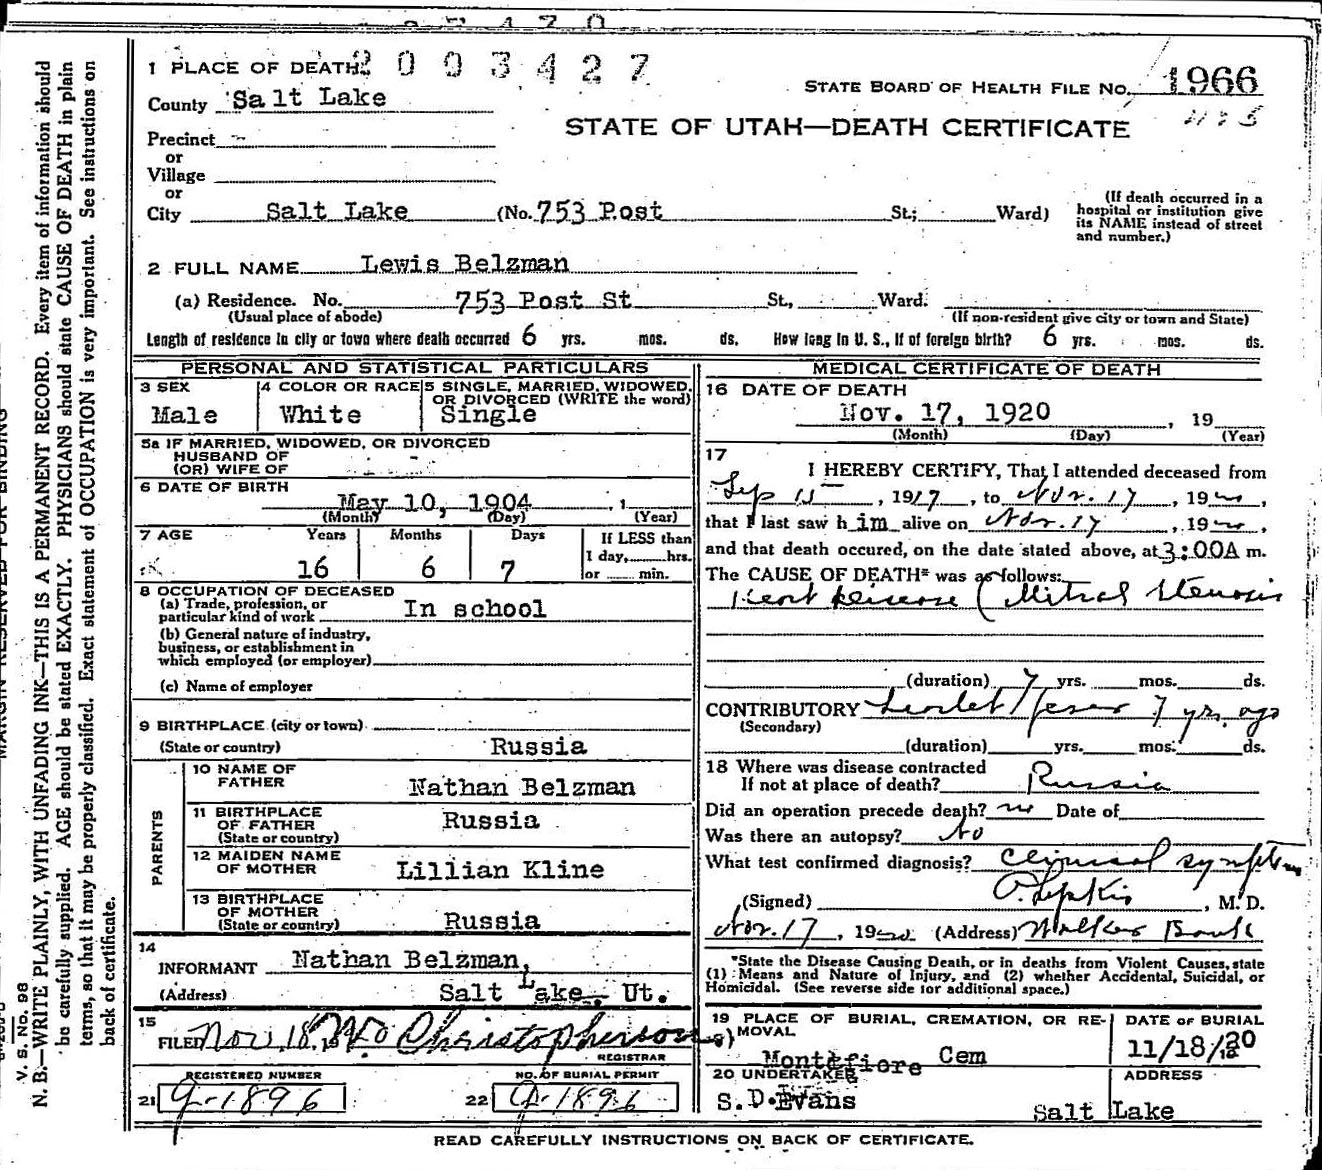 2003427
1 PLACE OF DEATH
STATE BOARD OF HEALTH FILE NO. 1966
County Salt Lake
STATE OF UTAH—DEATH CERTIFICATE
Precinct
or
Village
or
City Salt Lake (No. 753 Post St.; Ward)
(If death occurred in a hospital or institution give its NAME instead of street and number.)
2 FULL NAME Lewis Belzman
(a) Residence. No. 753 Post St St., Ward.
(Usual place of abode) (If non-resident give city or town and State)
Length of residence in city or town where death occurred 6 yrs. mos. ds. How long in U. S., if of foreign birth? 6 yrs. mos. ds.
PERSONAL AND STATISTICAL PARTICULARS
3 SEX Male
4 COLOR OR RACE White
5 SINGLE, MARRIED, WIDOWED, OR DIVORCED (WRITE the word) Single
5a IF MARRIED, WIDOWED, OR DIVORCED
HUSBAND OF
(OR) WIFE OF
6 DATE OF BIRTH
May 10, 1904, 1
(Month) (Day) (Year)
7 AGE Years Months Days If LESS than
1 day, hrs.
16 6 7 or min.
8 OCCUPATION OF DECEASED
(a) Trade, profession, or
particular kind of work In school
(b) General nature of industry,
business, or establishment in
which employed (or employer)
(c) Name of employer
9 BIRTHPLACE (city or town)
(State or country) Russia
PARENTS
10 NAME OF
FATHER Nathan Belzman
11 BIRTHPLACE
OF FATHER Russia
(State or country)
12 MAIDEN NAME
OF MOTHER Lillian Kline
13 BIRTHPLACE
OF MOTHER
(State or country) Russia
14
INFORMANT Nathan Belzman,
(Address) Salt Lake, Ut.
15
FILED Nov. 18, Christopherson
REGISTRAR
REGISTERED NUMBER NO. OF BURIAL PERMIT
21 1896 22 1896
MEDICAL CERTIFICATE OF DEATH
16 DATE OF DEATH
Nov. 17, 1920, 19
(Month) (Day) (Year)
17
I HEREBY CERTIFY, That I attended deceased from
Sep 15, 1917, to Nov. 17, 1920,
that I last saw him alive on Nov. 17, 1920,
and that death occured, on the date stated above, at 3:00A m.
The CAUSE OF DEATH* was as follows:
Heart disease (Mitral Stenosis
(duration) 7 yrs. mos. ds.
CONTRIBUTORY Scarlet fever 7 yrs. ago
(Secondary)
(duration) yrs. mos. ds.
18 Where was disease contracted
If not at place of death? Russia
Did an operation precede death? no Date of
Was there an autopsy? No
What test confirmed diagnosis? clinical symptoms
(Signed) Lipkis, M. D.
Nov. 17, 1920 (Address) Walker Bank
*State the Disease Causing Death, or in deaths from Violent Causes, state
(1) Means and Nature of Injury, and (2) whether Accidental, Suicidal, or
Homicidal. (See reverse side for additional space.)
19 PLACE OF BURIAL, CREMATION, OR RE-
MOVAL
Montefiore Cem
DATE OF BURIAL
11/18/20
20 UNDERTAKER
S.D. Evans
ADDRESS
Salt Lake
READ CAREFULLY INSTRUCTIONS ON BACK OF CERTIFICATE.
V. S. No. 98
N. B.—WRITE PLAINLY, WITH UNFADING INK—THIS IS A PERMANENT RECORD. Every item of information should
be carefully supplied. AGE should be stated EXACTLY. PHYSICIANS should state CAUSE OF DEATH in plain
terms, so that it may be properly classified. Exact statement of OCCUPATION is very important. See instructions on
back of certificate.